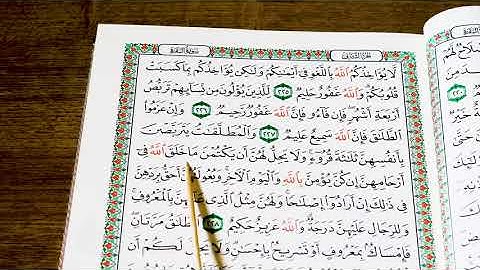 سورة البقرة
الجزء الثاني
لَّا يُؤَاخِذُكُمُ ٱللَّهُ بِٱللَّغْوِ فِىٓ أَيْمَـٰنِكُمْ وَلَـٰكِن يُؤَاخِذُكُم بِمَا كَسَبَتْ
قُلُوبُكُمْ وَٱللَّهُ غَفُورٌ حَلِيمٌ ٢٢٥ لِّلَّذِينَ يُؤْلُونَ مِن نِّسَآئِهِمْ تَرَبُّصُ
أَرْبَعَةِ أَشْهُرٍ فَإِن فَآءُو فَإِنَّ ٱللَّهَ غَفُورٌ رَّحِيمٌ ٢٢٦ وَإِنْ عَزَمُوا۟
ٱلطَّلَـٰقَ فَإِنَّ ٱللَّهَ سَمِيعٌ عَلِيمٌ ٢٢٧ وَٱلْمُطَلَّقَـٰتُ يَتَرَبَّصْنَ
بِأَنفُسِهِنَّ ثَلَـٰثَةَ قُرُوٓءٍ وَلَا يَحِلُّ لَهُنَّ أَن يَكْتُمْنَ مَا خَلَقَ ٱللَّهُ فِىٓ
أَرْحَامِهِنَّ إِن كُنَّ يُؤْمِنَّ بِٱللَّهِ وَٱلْيَوْمِ ٱلْـَٔاخِرِ وَبُعُولَتُهُنَّ أَحَقُّ بِرَدِّهِنَّ
فِى ذَٰلِكَ إِنْ أَرَادُوٓا۟ إِصْلَـٰحًا وَلَهُنَّ مِثْلُ ٱلَّذِى عَلَيْهِنَّ بِٱلْمَعْرُوفِ
وَلِلرِّجَالِ عَلَيْهِنَّ دَرَجَةٌ وَٱللَّهُ عَزِيزٌ حَكِيمٌ ٢٢٨ ٱلطَّلَـٰقُ مَرَّتَانِ
فَإِمْسَاكٌ بِمَعْرُوفٍ أَوْ تَسْرِيحٌ بِإِحْسَـٰنٍ وَلَا يَحِلُّ لَكُمْ أَن